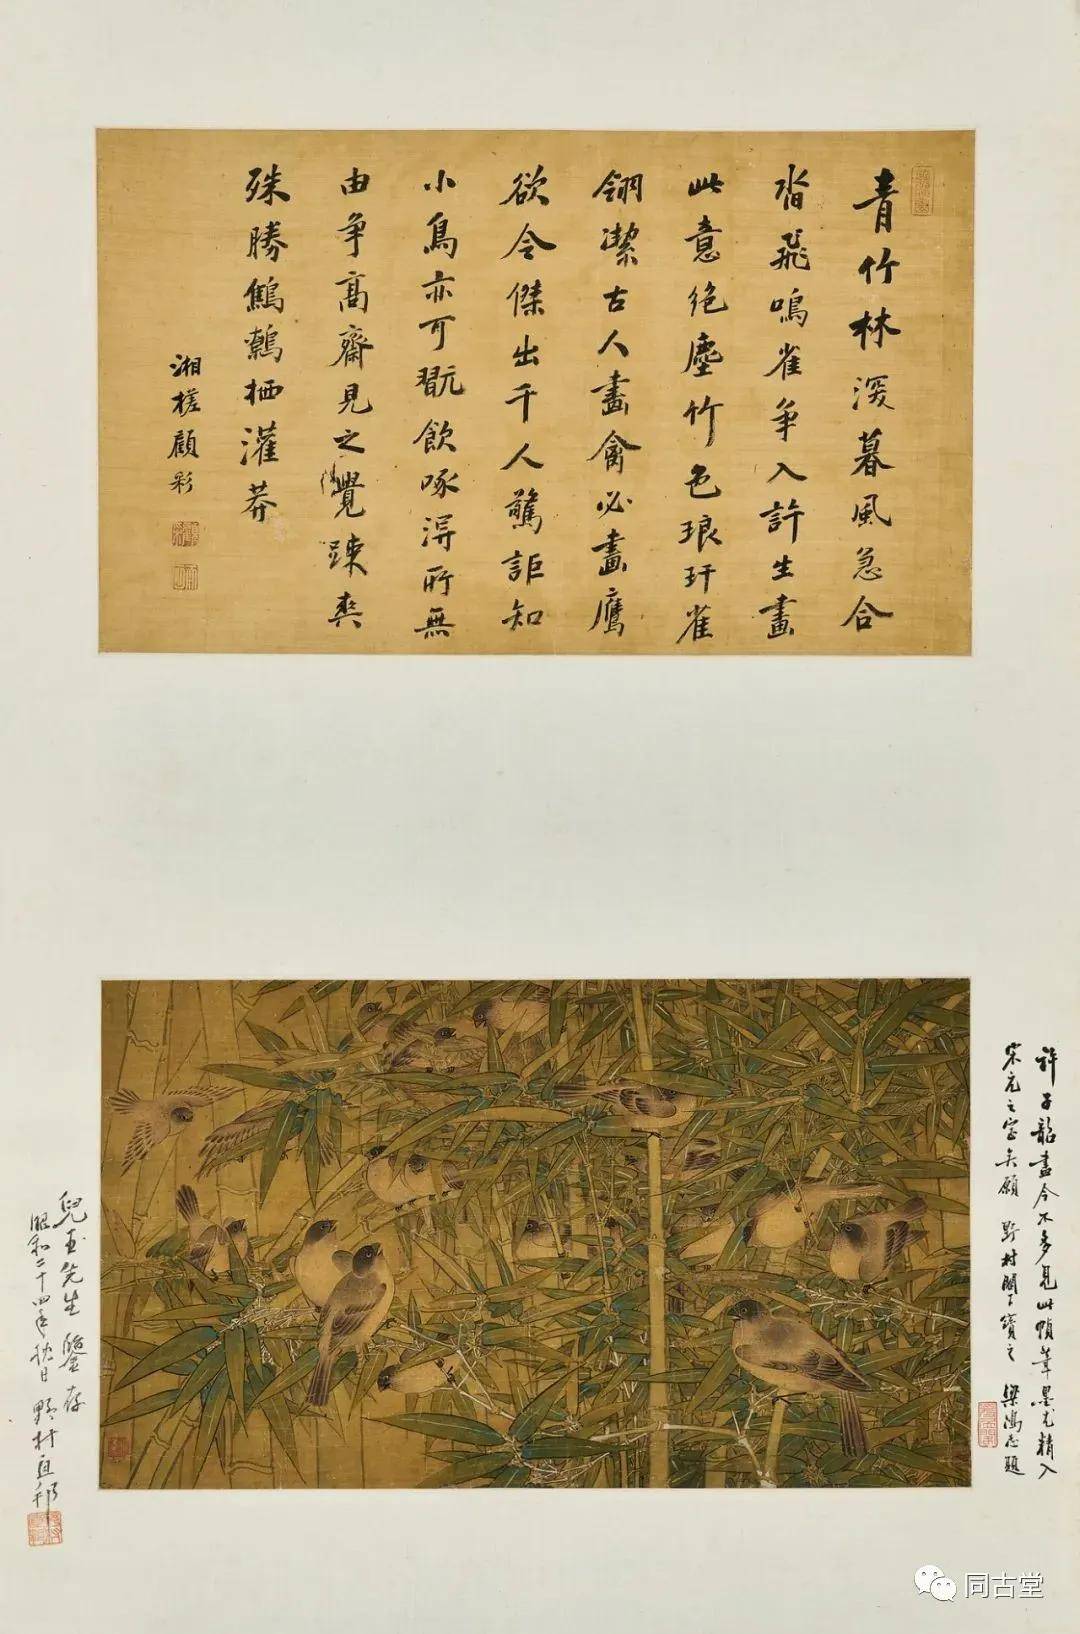 青竹林深暮風急合
沓飛鳴雀爭入許生畫
此意絕塵竹色琅玕雀
翎潔古人畫禽必畫鷹
欲令傑出千人驚詎知
小鳥亦可翫飲啄得所無
由爭高齋見之覺疎爽
殊勝鷦鷯栖灌莽
湘槎顧彩
許子韶畫今不多見此幀筆墨尤精入
宋元之室矣願 野村閣下寶之 梁鴻志題
兒玉先生 鑒存
昭和二十四年秋日 野村直邦
同古堂